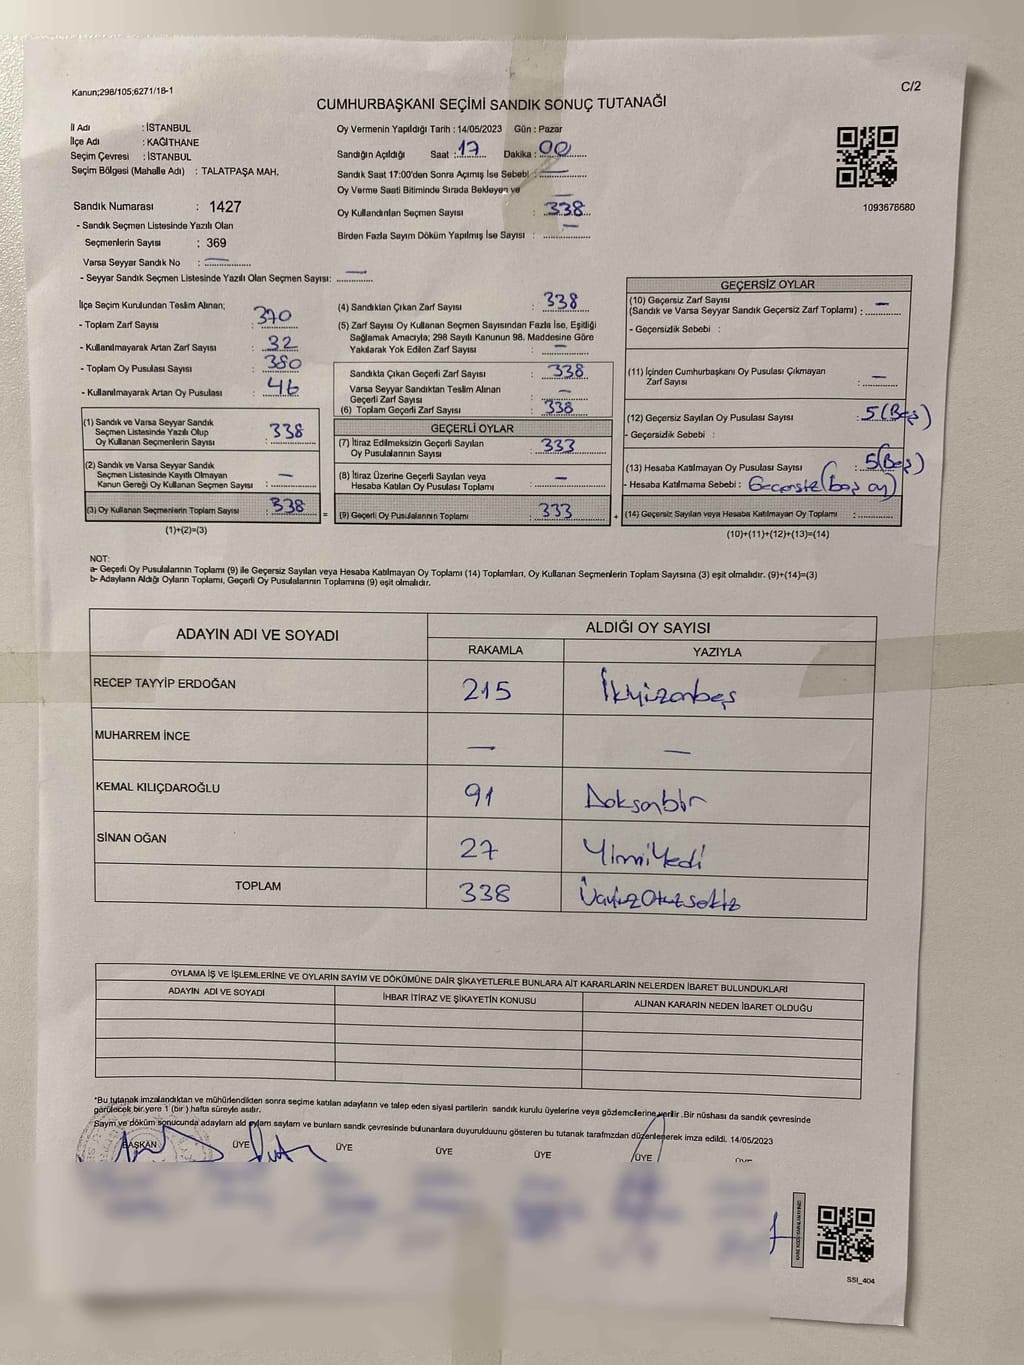 Kanun;298/105;6271/18-1
C/2
CUMHURBAŞKANI SEÇİMİ SANDIK SONUÇ TUTANAĞI
İl Adı : İSTANBUL
İlçe Adı : KAĞITHANE
Seçim Çevresi : İSTANBUL
Seçim Bölgesi (Mahalle Adı) : TALATPAŞA MAH.
Sandık Numarası : 1427
- Sandık Seçmen Listesinde Yazılı Olan
Seçmenlerin Sayısı : 369
Varsa Seyyar Sandık No : —
- Seyyar Sandık Seçmen Listesinde Yazılı Olan Seçmen Sayısı: —
Oy Vermenin Yapıldığı Tarih : 14/05/2023 Gün : Pazar
Sandığın Açıldığı Saat : 17 Dakika : 00
Sandık Saat 17:00'den Sonra Açımış İse Sebebi : —
Oy Verme Saati Bitiminde Sırada Bekleyen ve —
Oy Kullandırılan Seçmen Sayısı : 338
Birden Fazla Sayım Döküm Yapılmış İse Sayısı : —
1093678680
İlçe Seçim Kurulundan Teslim Alınan;
- Toplam Zarf Sayısı : 370
- Kullanılmayarak Artan Zarf Sayısı : 32
- Toplam Oy Pusulası Sayısı : 380
- Kullanılmayarak Artan Oy Pusulası : 46
(1) Sandık ve Varsa Seyyar Sandık
Seçmen Listesinde Yazılı Olup
Oy Kullanan Seçmenlerin Sayısı : 338
(2) Sandık ve Varsa Seyyar Sandık
Seçmen Listesinde Kayıtlı Olmayan
Kanun Gereği Oy Kullanan Seçmen Sayısı : —
(3) Oy Kullanan Seçmenlerin Toplam Sayısı : 338 =
(1)+(2)=(3)
(4) Sandıktan Çıkan Zarf Sayısı : 338
(5) Zarf Sayısı Oy Kullanan Seçmen Sayısından Fazla İse, Eşitliği
Sağlamak Amacıyla; 298 Sayılı Kanunun 98. Maddesine Göre
Yakılarak Yok Edilen Zarf Sayısı : —
Sandıkta Çıkan Geçerli Zarf Sayısı : 338
Varsa Seyyar Sandıktan Teslim Alınan
Geçerli Zarf Sayısı : —
(6) Toplam Geçerli Zarf Sayısı : 338
GEÇERLİ OYLAR
(7) İtiraz Edilmeksizin Geçerli Sayılan
Oy Pusulasının Sayısı : 333
(8) İtiraz Üzerine Geçerli Sayılan veya
Hesaba Katılan Oy Pusulası Toplamı : —
(9) Geçerli Oy Pusulalarının Toplamı : 333 +
GEÇERSİZ OYLAR
(10) Geçersiz Zarf Sayısı
(Sandık ve Varsa Seyyar Sandık Geçersiz Zarf Toplamı) : —
- Geçersizlik Sebebi :
(11) İçinden Cumhurbaşkanı Oy Pusulası Çıkmayan
Zarf Sayısı : —
(12) Geçersiz Sayılan Oy Pusulası Sayısı : 5 (Beş)
- Geçersizlik Sebebi :
(13) Hesaba Katılmayan Oy Pusulası Sayısı : 5 (Beş)
- Hesaba Katılmama Sebebi : (boş oy)
(14) Geçersiz Sayılan veya Hesaba Katılmayan Oy Toplamı :
(10)+(11)+(12)+(13)=(14)
NOT:
a- Geçerli Oy Pusulalarının Toplamı (9) ile Geçersiz Sayılan veya Hesaba Katılmayan Oy Toplamı (14) Toplamları, Oy Kullanan Seçmenlerin Toplam Sayısına (3) eşit olmalıdır. (9)+(14)=(3)
b- Adayların Aldığı Oyların Toplamı, Geçerli Oy Pusulalarının Toplamına (9) eşit olmalıdır.
ADAYIN ADI VE SOYADI
ALDIĞI OY SAYISI
RAKAMLA YAZIYLA
RECEP TAYYİP ERDOĞAN 215 İkiyüzonbeş
MUHARREM İNCE — —
KEMAL KILIÇDAROĞLU 91 Doksanbir
SİNAN OĞAN 27 YirmiYedi
TOPLAM 338 ÜçyüzOtuzsekiz
OYLAMA İŞ VE İŞLEMLERİNE VE OYLARIN SAYIM VE DÖKÜMÜNE DAİR ŞİKAYETLERLE BUNLARA AİT KARARLARIN NELERDEN İBARET BULUNDUKLARI
ADAYIN ADI VE SOYADI İHBAR İTİRAZ VE ŞİKAYETİN KONUSU ALINAN KARARIN NEDEN İBARET OLDUĞU
*Bu tutanak imzalandıktan ve mühürlendikten sonra seçime katılan adayların ve talep eden siyasi partilerin sandık kurulu üyelerine veya gözlemcilerine verilir .Bir nüshası da sandık çevresinde
görülecek bir yere 1 (bir ) hafta süreyle asılır.
Sayım ve döküm sonucunda adayların ald oyların sayısını ve bunların sandık çevresinde bulunanlara duyurulduğunu gösteren bu tutanak tarafımızdan düzenlenerek imza edildi. 14/05/2023
BAŞKAN ÜYE ÜYE ÜYE ÜYE ÜYE ÜYE
SSI_404